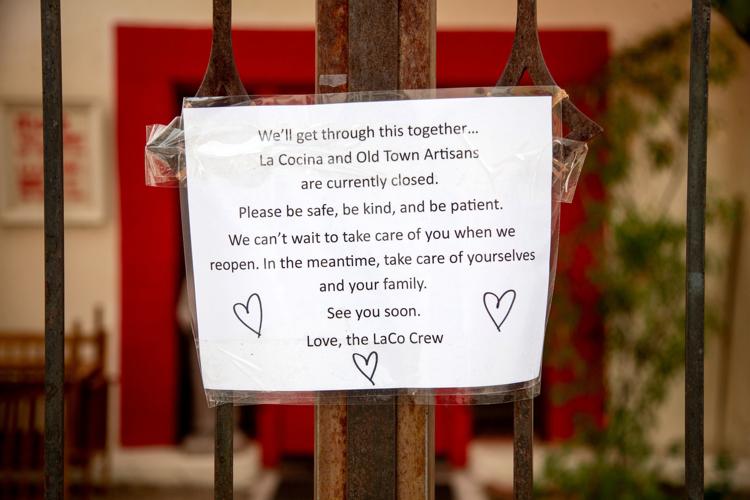 We'll get through this together...
La Cocina and Old Town Artisans
are currently closed.
Please be safe, be kind, and be patient.
We can't wait to take care of you when we
reopen. In the meantime, take care of yourselves
and your family.
See you soon.
Love, the LaCo Crew